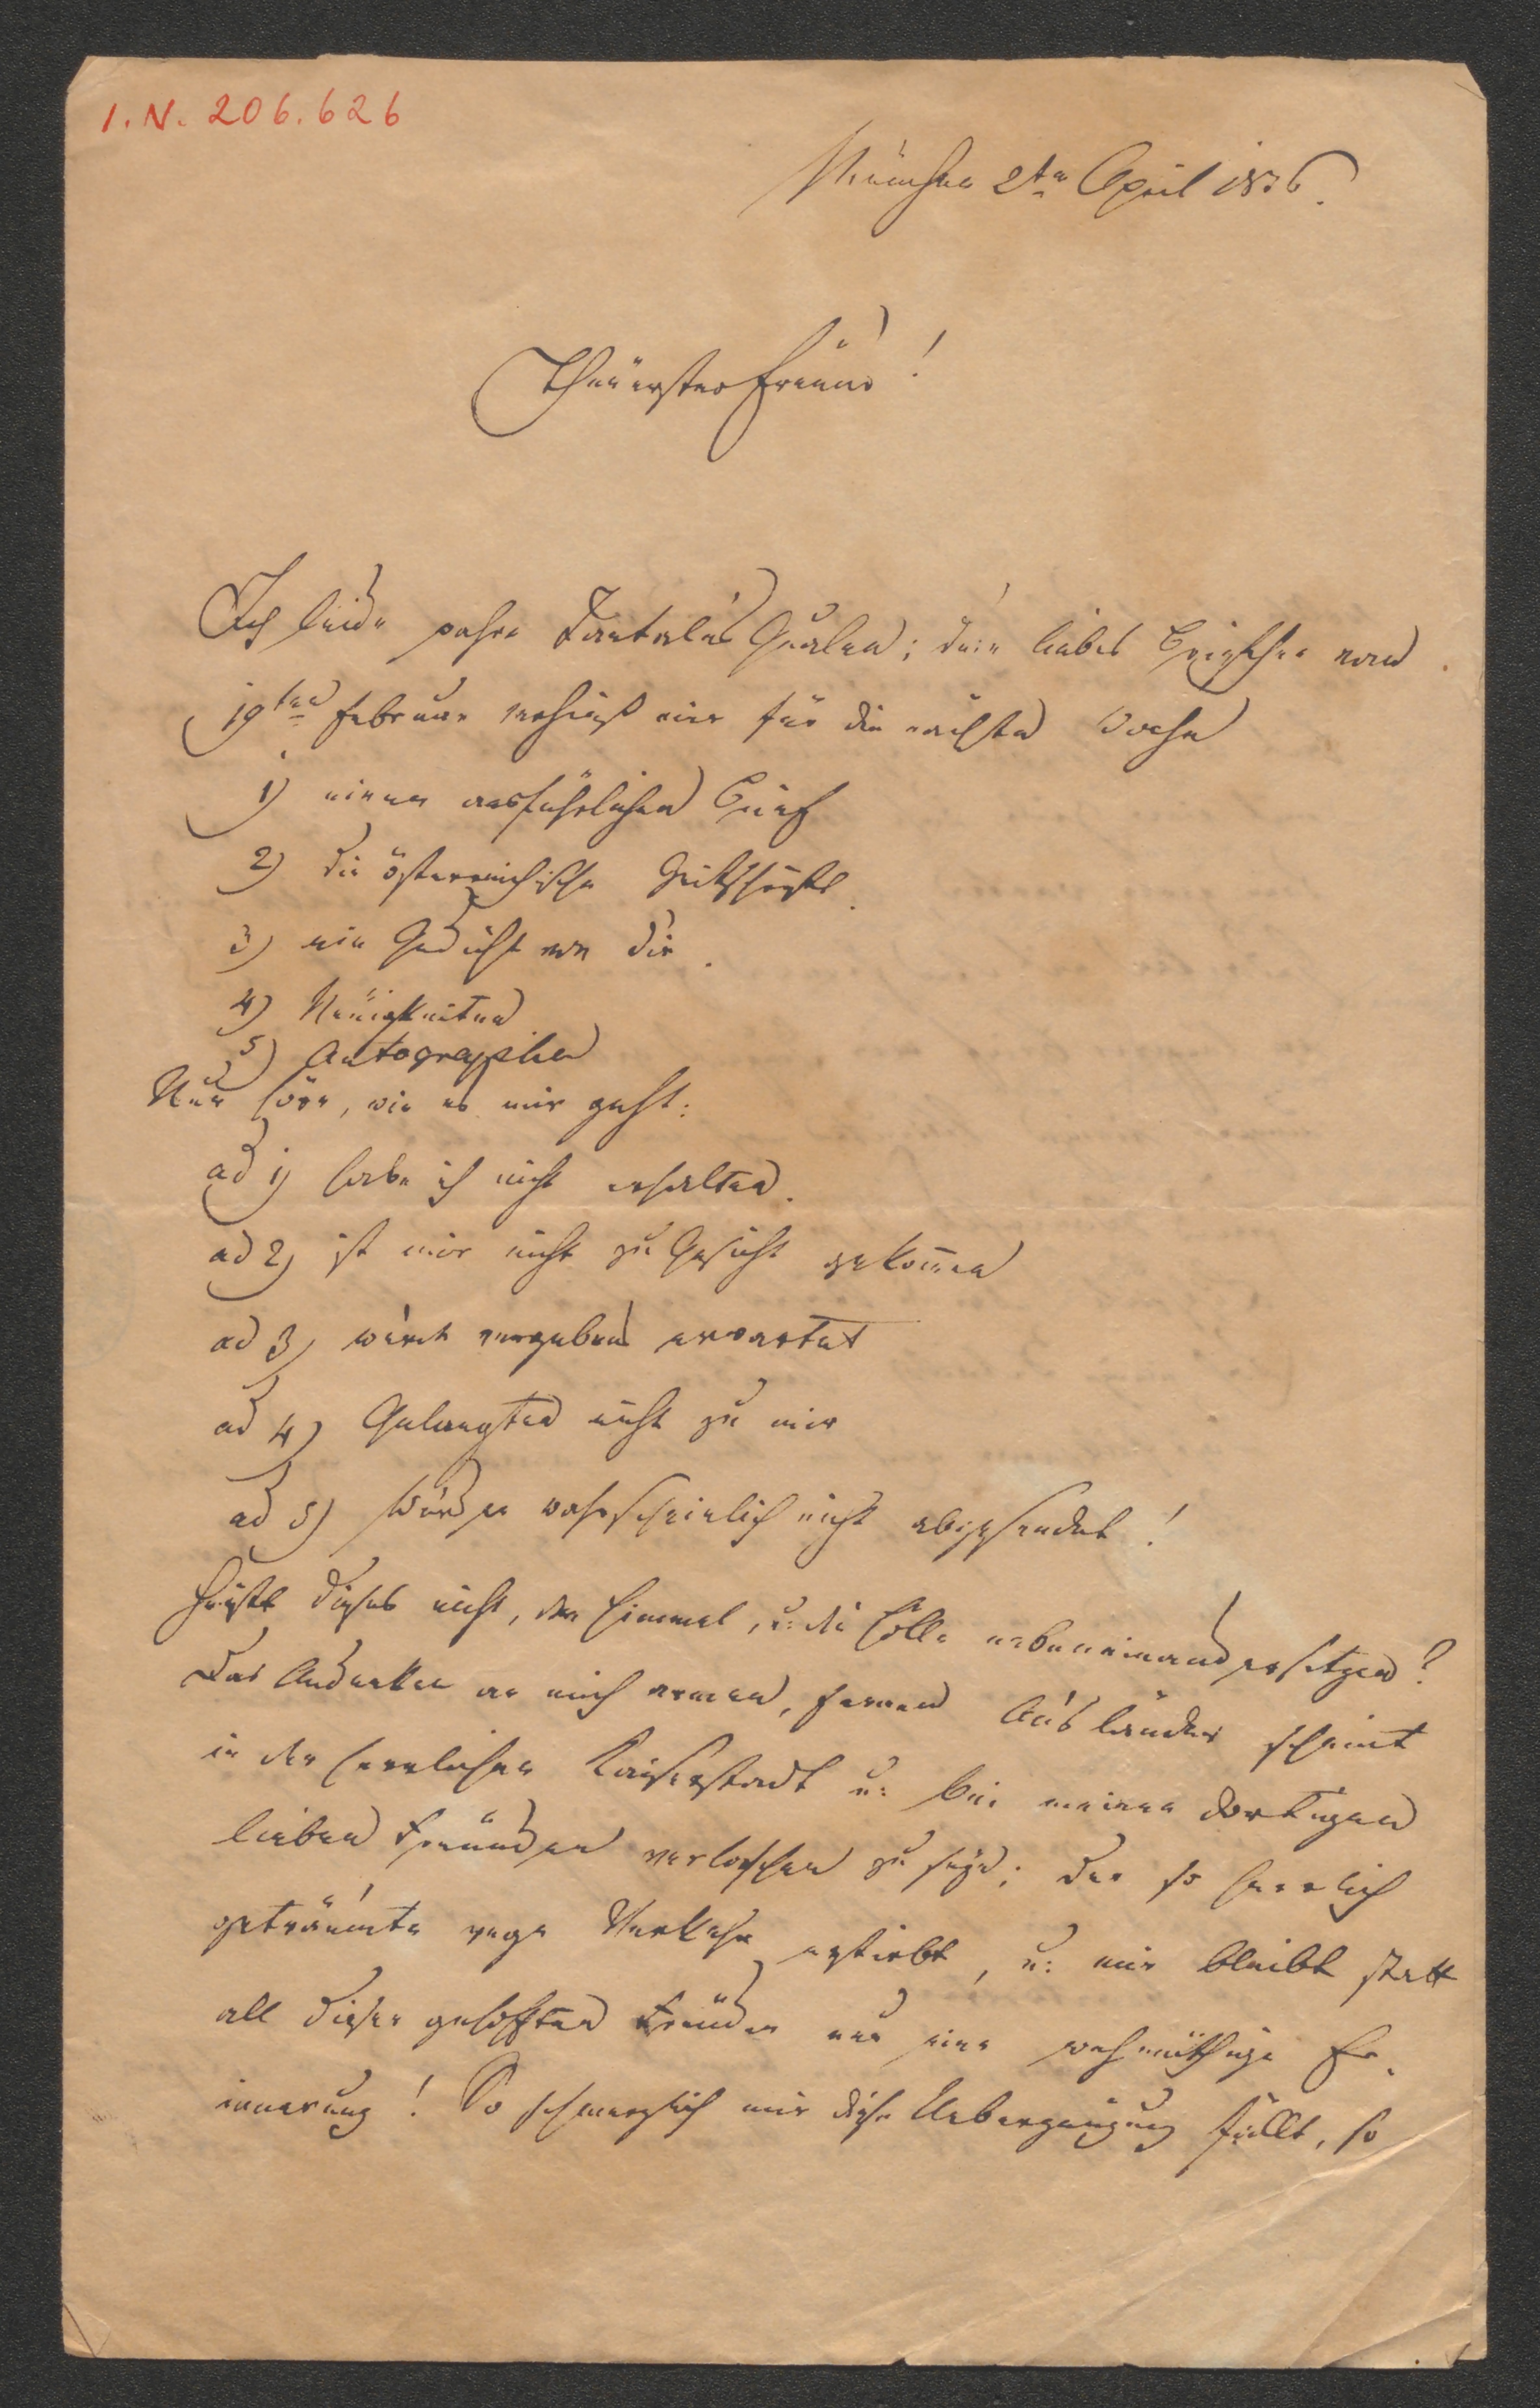 I.N. 206.626
München 2ten April 1836.
Theuerster Freund!
Ich leide wahre Tantalus Qualen; dein liebes Briefchen vom
19ten Februar verhieß mir für die nächsten Woche
1) einen ausführlichen Brief
2) die österreichische Zeitschrift.
3) ein Gedicht von dir.
4) Neuigkeiten
5) Autographen
Nun höre, wie es mir geht:
ad 1) habe ich nicht erhalten.
ad 2) ist mir nicht zu Gesicht gekom̄en
ad 3) ward vergebens erwartet
ad 4) Gelangten nicht zu mir
ad 5) Wurden wahrscheinlich nicht abgesendet!
Heißt dieses nicht, den Himmel, u: die Hölle nebeneinandersetzen?
Das Andenken an mich armen, fernen Ausländer scheint
in der herrlichen Kaiserstadt u: bei meinen dortigen
lieben Freunden verloschen zu seyn; der so herrlich
geträumte rege Verkehr erstirbt, u: mir bleibt statt
all dieser gehofften Freuden nur eine wehmüthige Er-
innerung! So schmerzlich mir diese Ueberzeugung fällt, so